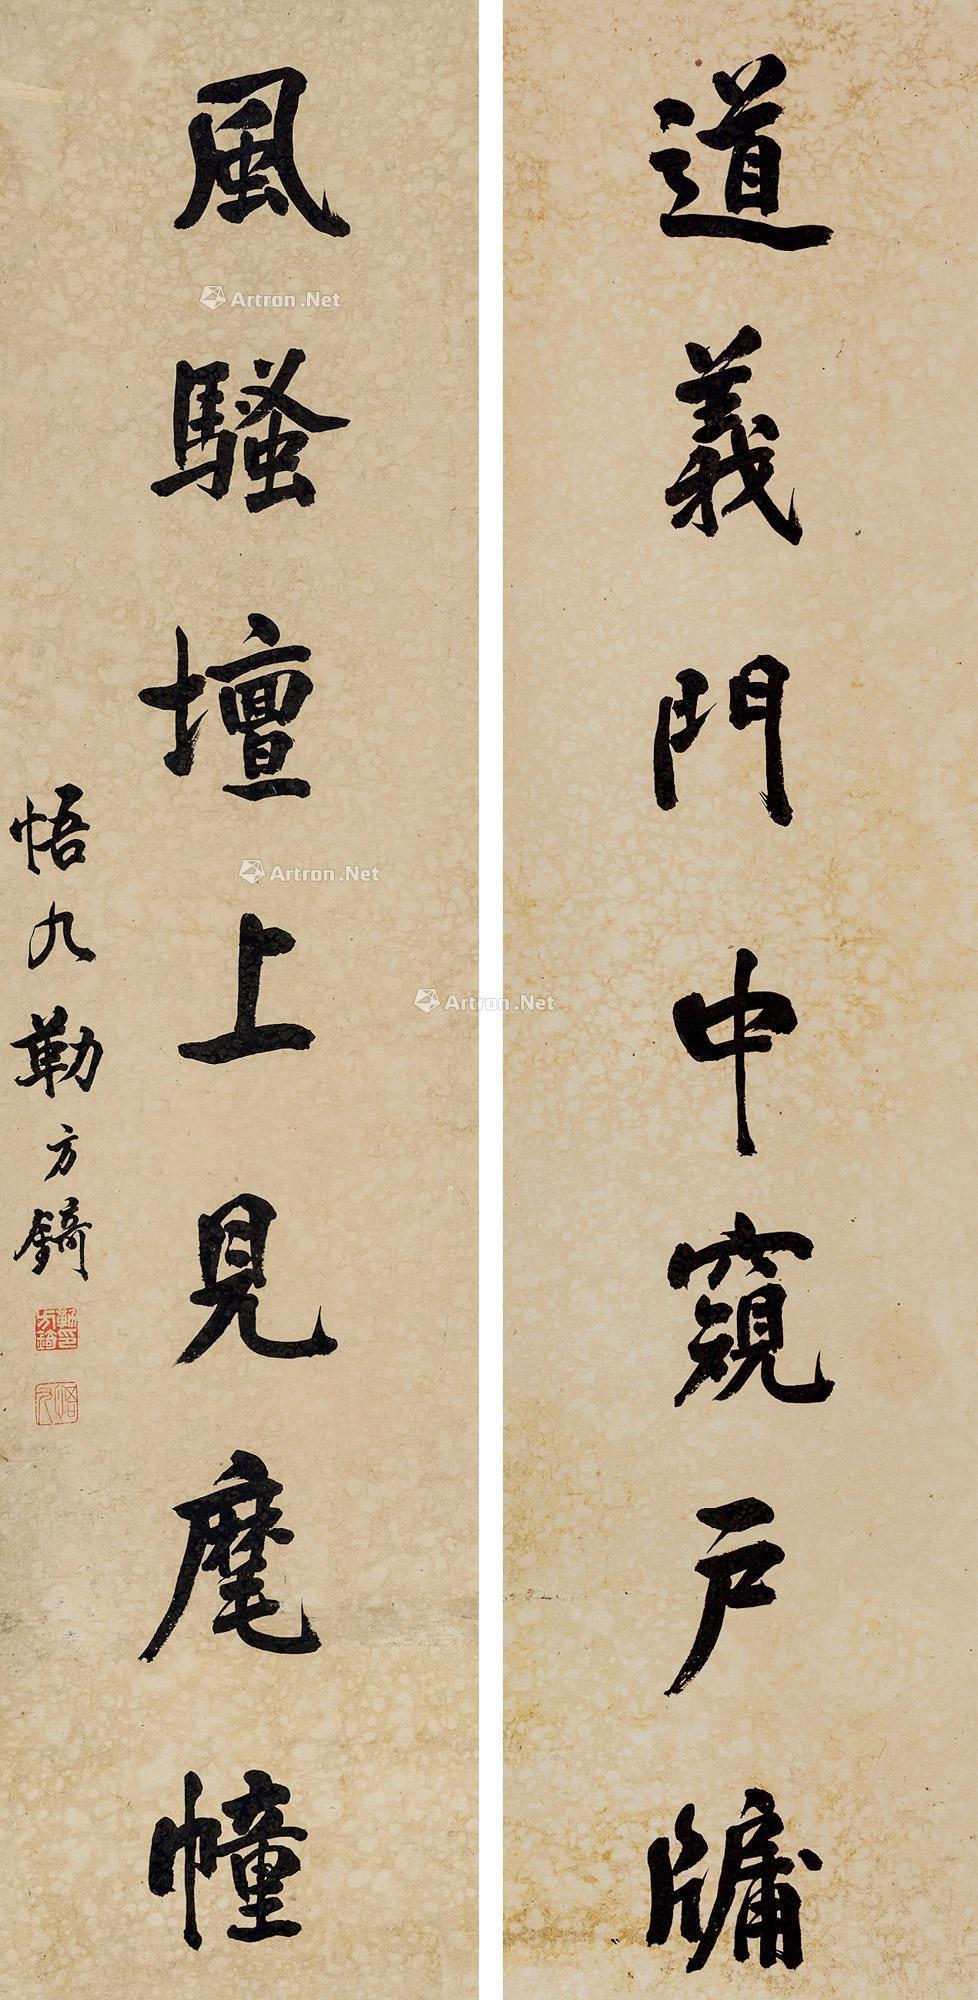 道義門中窺戶牖
風騷壇上見麾幢
悟九勒方錡
勒方錡印
悟九
Artron.Net
Artron.Net
Artron.Net